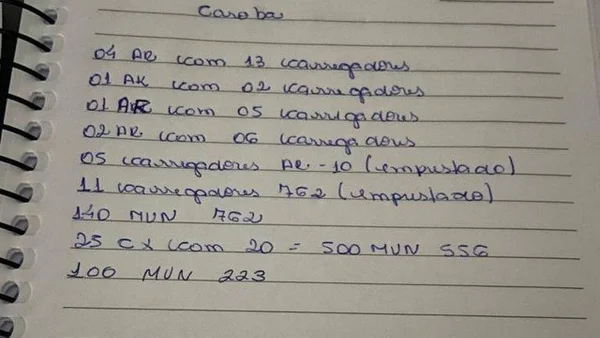 Caroba
04 AR com 13 carregadores
01 AK com 02 carregadores
01 AR com 05 carrigadores
02 AR com 06 carregadores
05 carregadores AR-10 (empustado)
11 carregadores 762 (empustado)
140 MUN 762
25 CX com 20 = 500 MUN 556
100 MUN 223